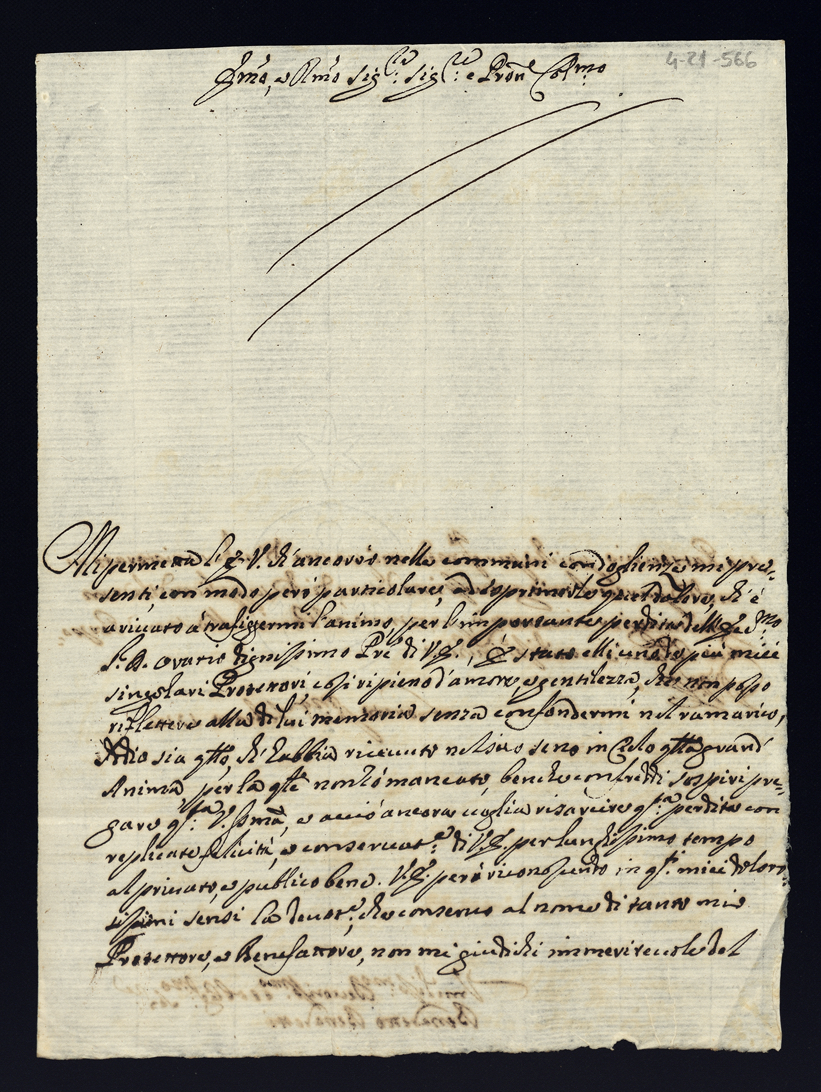 4-21-566
Ill.mo, e R.mo Sig.r Sig.r e Pron Col.mo
Mi permetta l' V. ch'ancor io nelle communi condoglienze mi pre-
senti, con modo però particolare, ad esprimerle quel dolore, ch'è
arivato à trafigermi l'animo, per l'importante perdita dell'
dignissimo Pre di V.E., È stato elli uno de più miei
singolari Protettori, così ripieno d'amore, e gentilezza, che non posso
riflettere alla di lui memoria senza confondermi nel ramarico,
Iddio sia qllo, ch'habbia ricevuto nel suo seno in Cielo qlla grand'
Anima, per la qle non hò mancato, benche con freddi sospiri pre-
gare q.ta S. Somã, e acciò ancora voglia risarcire q.ta perdita con
replicate felicità, e conservat.e di V.E. per lunghissimo tempo
al privato, e publico bene. V.E. però riconoscendo in q.ti miei doloro-
sissimi sensi la devot.e, che conservo al nome di tanto mio
Protettore, e Benefattore, non mi giudichi immeritevole del